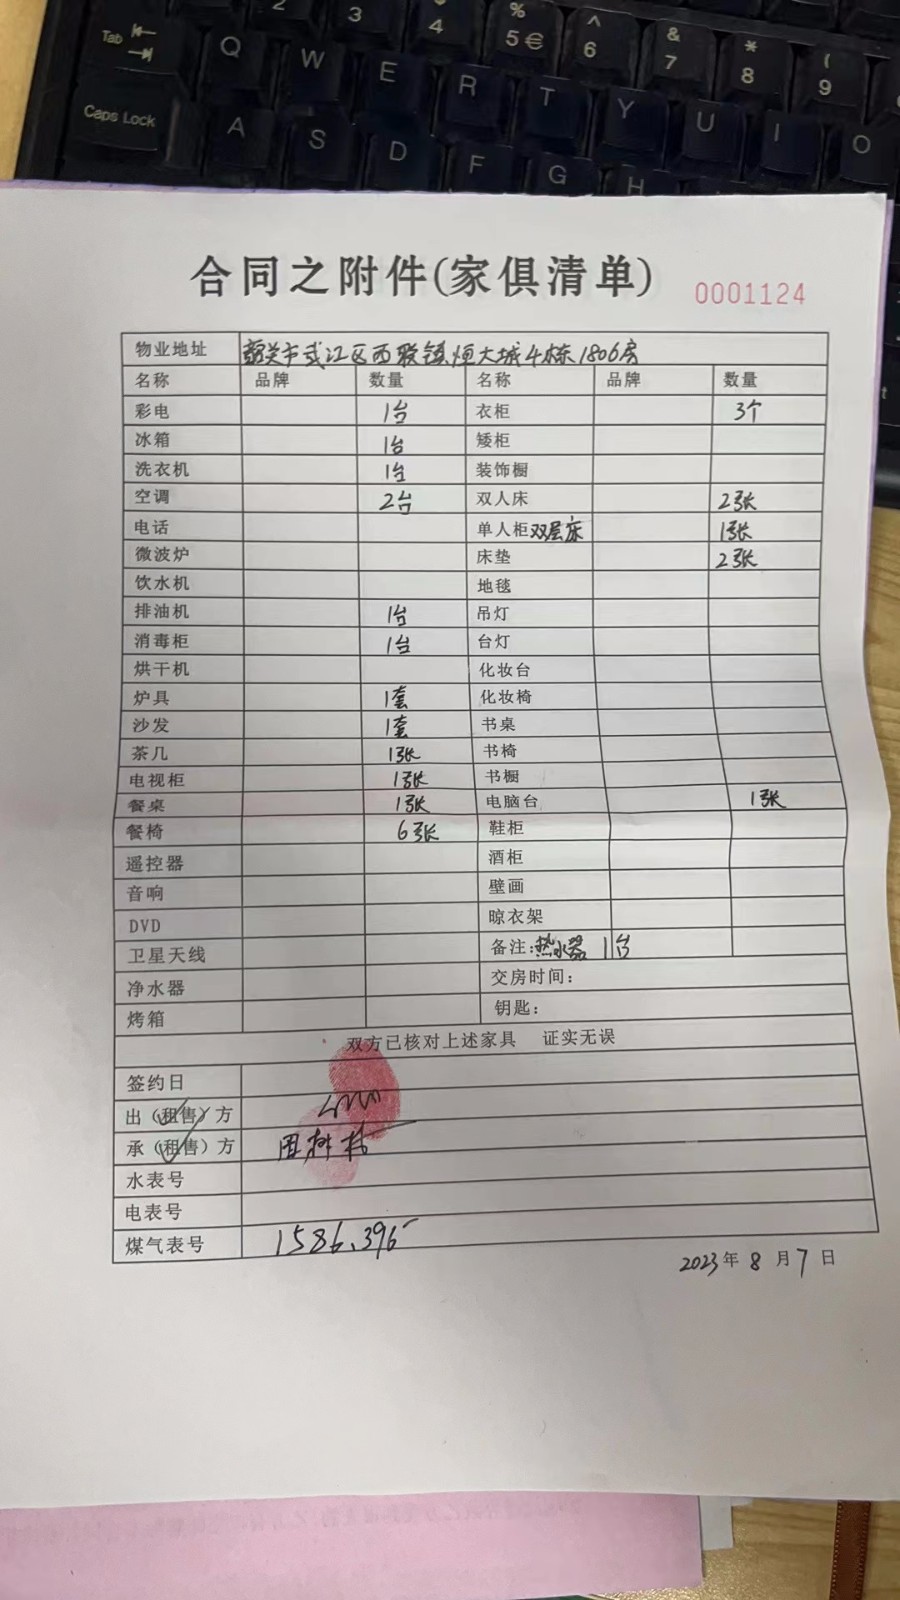 Tab
2
3
4
%
5€
^
6
&
7
*
8
(
9
Q W E R T Y U I O
Caps Lock
A S D F G H
合同之附件(家俱清单) 0001124
物业地址 韶关市武江区西联镇恒大城4栋1806房
名称 品牌 数量 名称 品牌 数量
彩电 1台 衣柜 3个
冰箱 1台 矮柜
洗衣机 1台 装饰橱
空调 2台 双人床 2张
电话 单人柜双层床 1张
微波炉 床垫 2张
饮水机 地毯
排油机 1台 吊灯
消毒柜 1台 台灯
烘干机 化妆台
炉具 1套 化妆椅
沙发 1套 书桌
茶几 1张 书椅
电视柜 1张 书橱
餐桌 1张 电脑台 1张
餐椅 6张 鞋柜
遥控器 酒柜
音响 壁画
DVD 晾衣架
卫星天线 备注:热水器 1台
净水器 交房时间:
烤箱 钥匙:
双方已核对上述家具 证实无误
签约日
出(租售)方
承(租售)方
水表号
电表号
煤气表号 1586.396
2023年8月7日